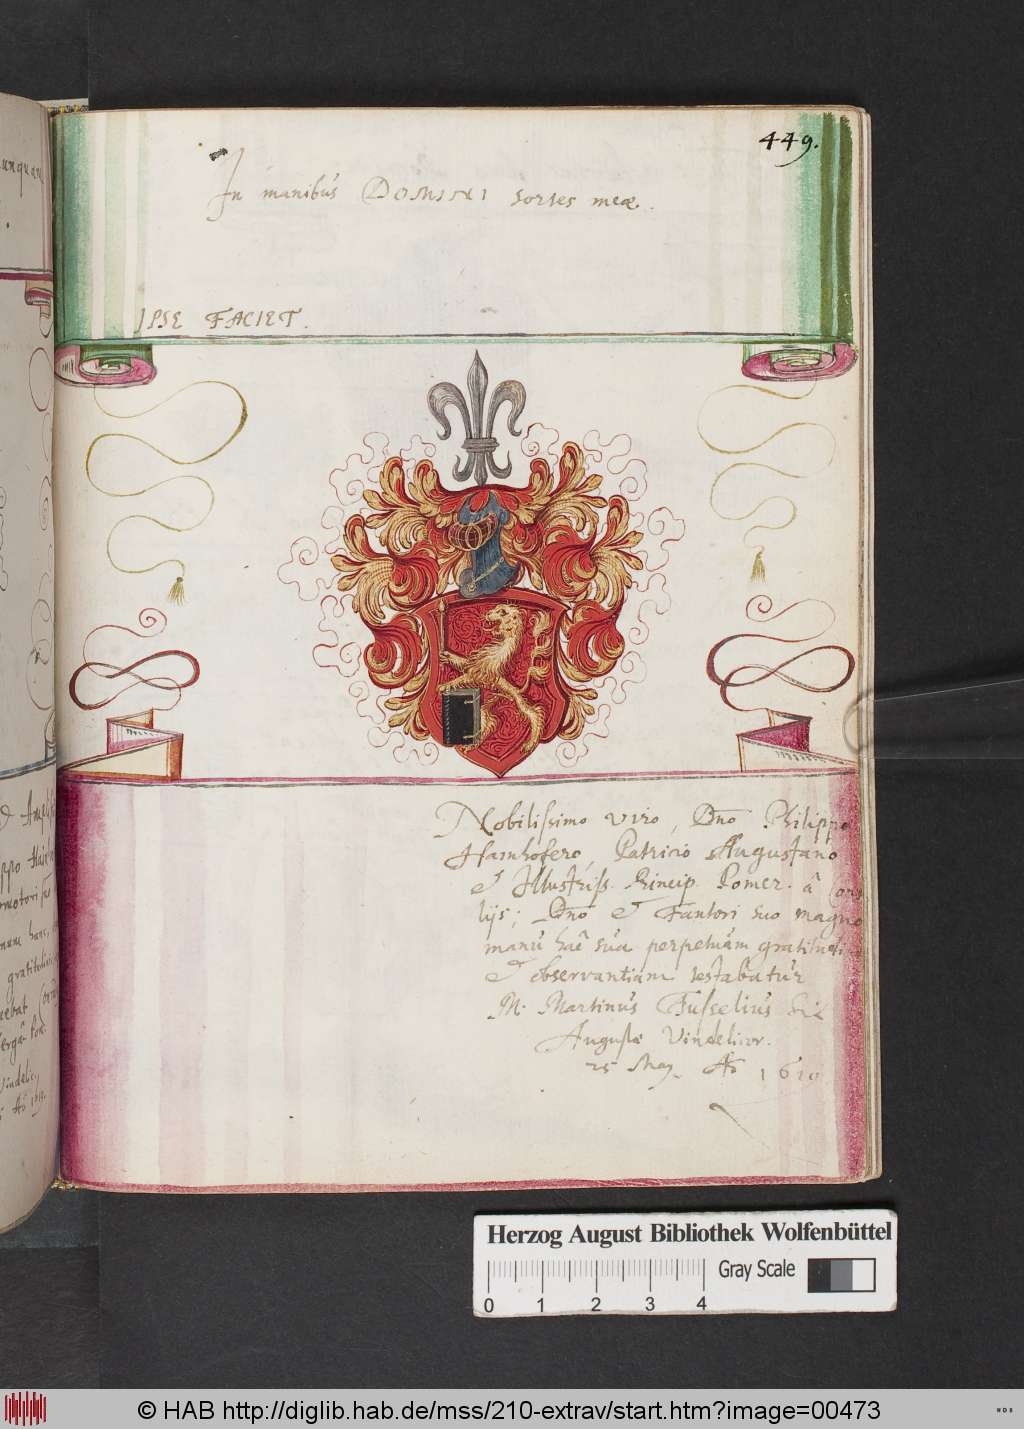 449.
In manibus DOMINI sortes meae.
IPSE FACIET.
Nobilissimo viro, Dno Philippo
Hainhofero, Patricio Augustano
et Illustriss. Princip. Pomer. â Con
lijs; Dno et Fautori suo magno
manû hac sua perpetuam gratitudi
et observantiam testabatur
M. Martinus
Augustae Vindelicor.
25 May. Aº 1619
unquam
gratitudi
Vindelic.
Aº 1619.
Herzog August Bibliothek Wolfenbüttel
Gray Scale
0 1 2 3 4
© HAB http://diglib.hab.de/mss/210-extrav/start.htm?image=00473
HAB